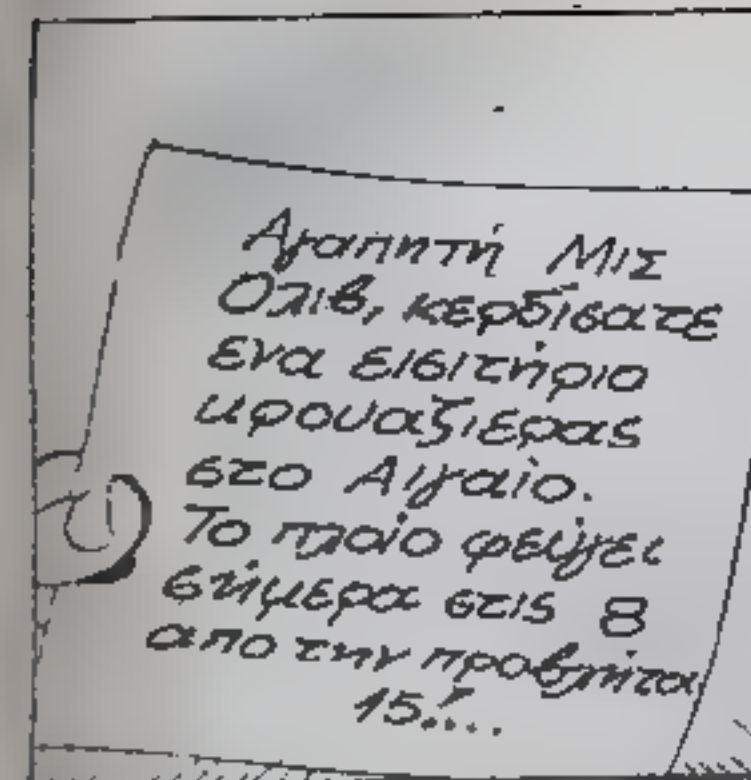 Αγαπητή Μις
Ολιβ, κερδίσατε
ενα εισιτήριο
κρουαζιερας
στο Αιγαίο.
Το πλοίο φεύγει
σήμερα στις 8
απο την προβλήτα
15!...